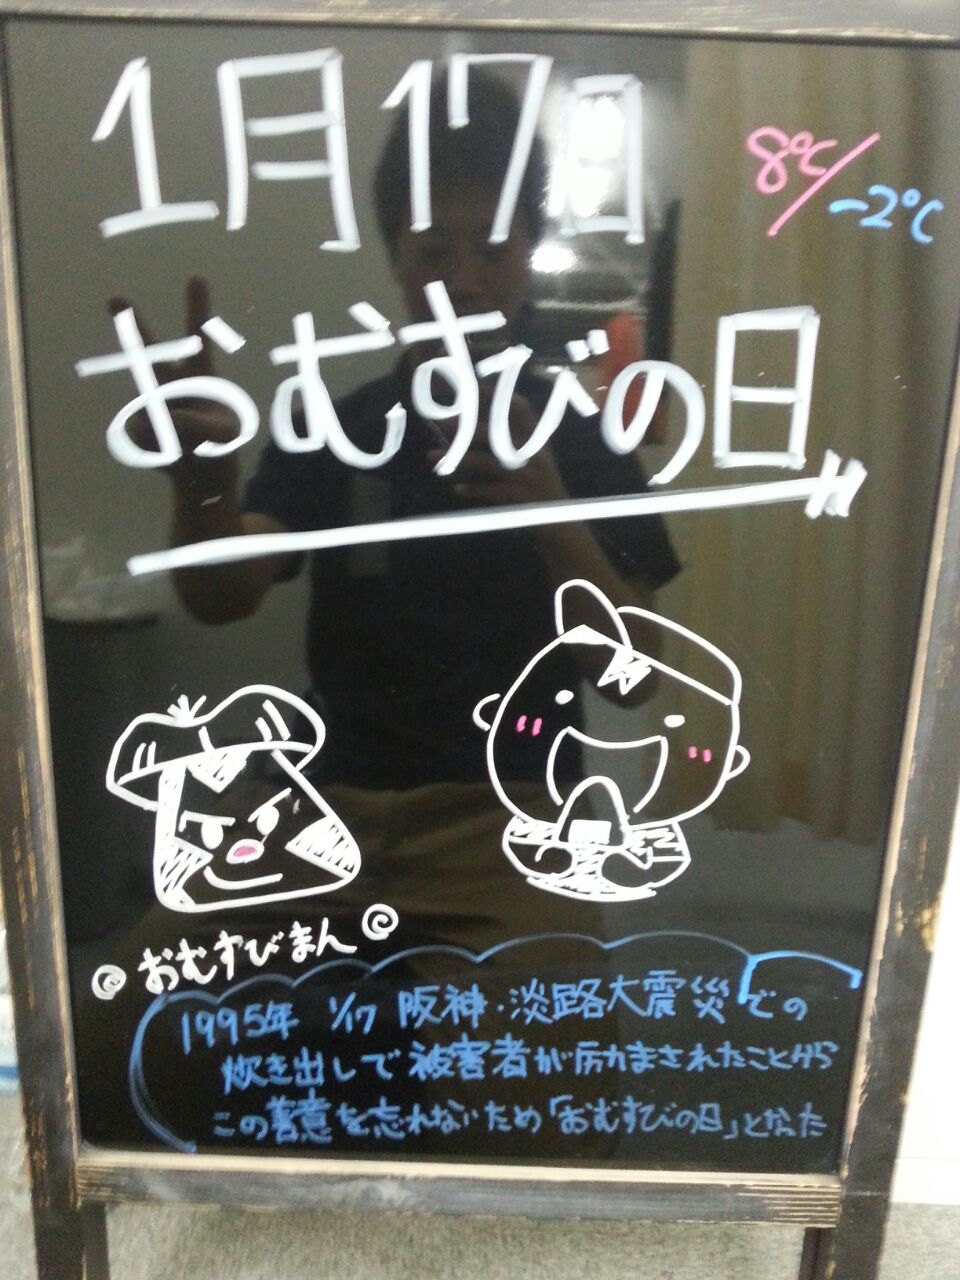 1月17日
8℃/-2℃
おむすびの日
おむすびまん
1995年 1/17 阪神・淡路大震災での
炊き出しで被害者が励まされたことから
この善意を忘れないため「おむすびの日」となった